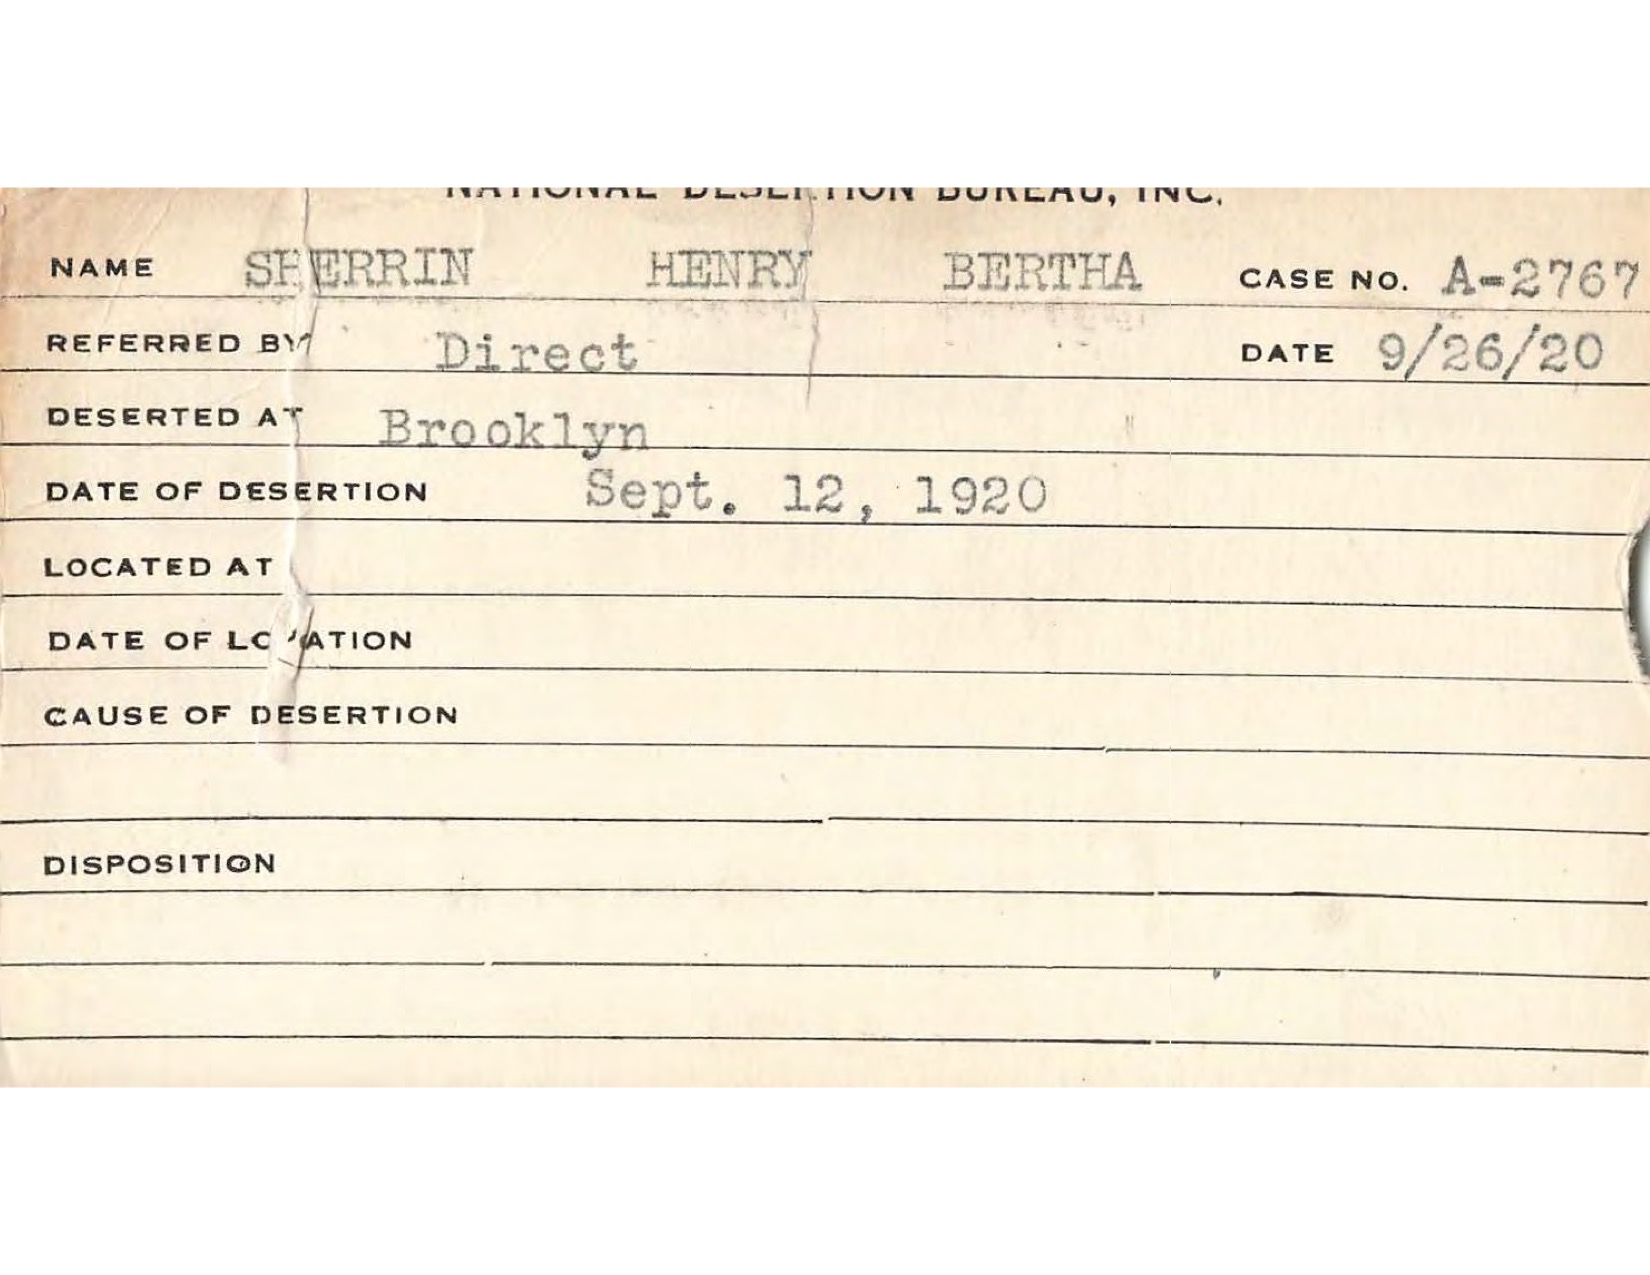 NATIONAL DESERTION BUREAU, INC.
NAME SHERRIN HENRY BERTHA CASE NO. A-2767
REFERRED BY Direct DATE 9/26/20
DESERTED AT Brooklyn
DATE OF DESERTION Sept. 12, 1920
LOCATED AT
DATE OF LOCATION
CAUSE OF DESERTION
DISPOSITION